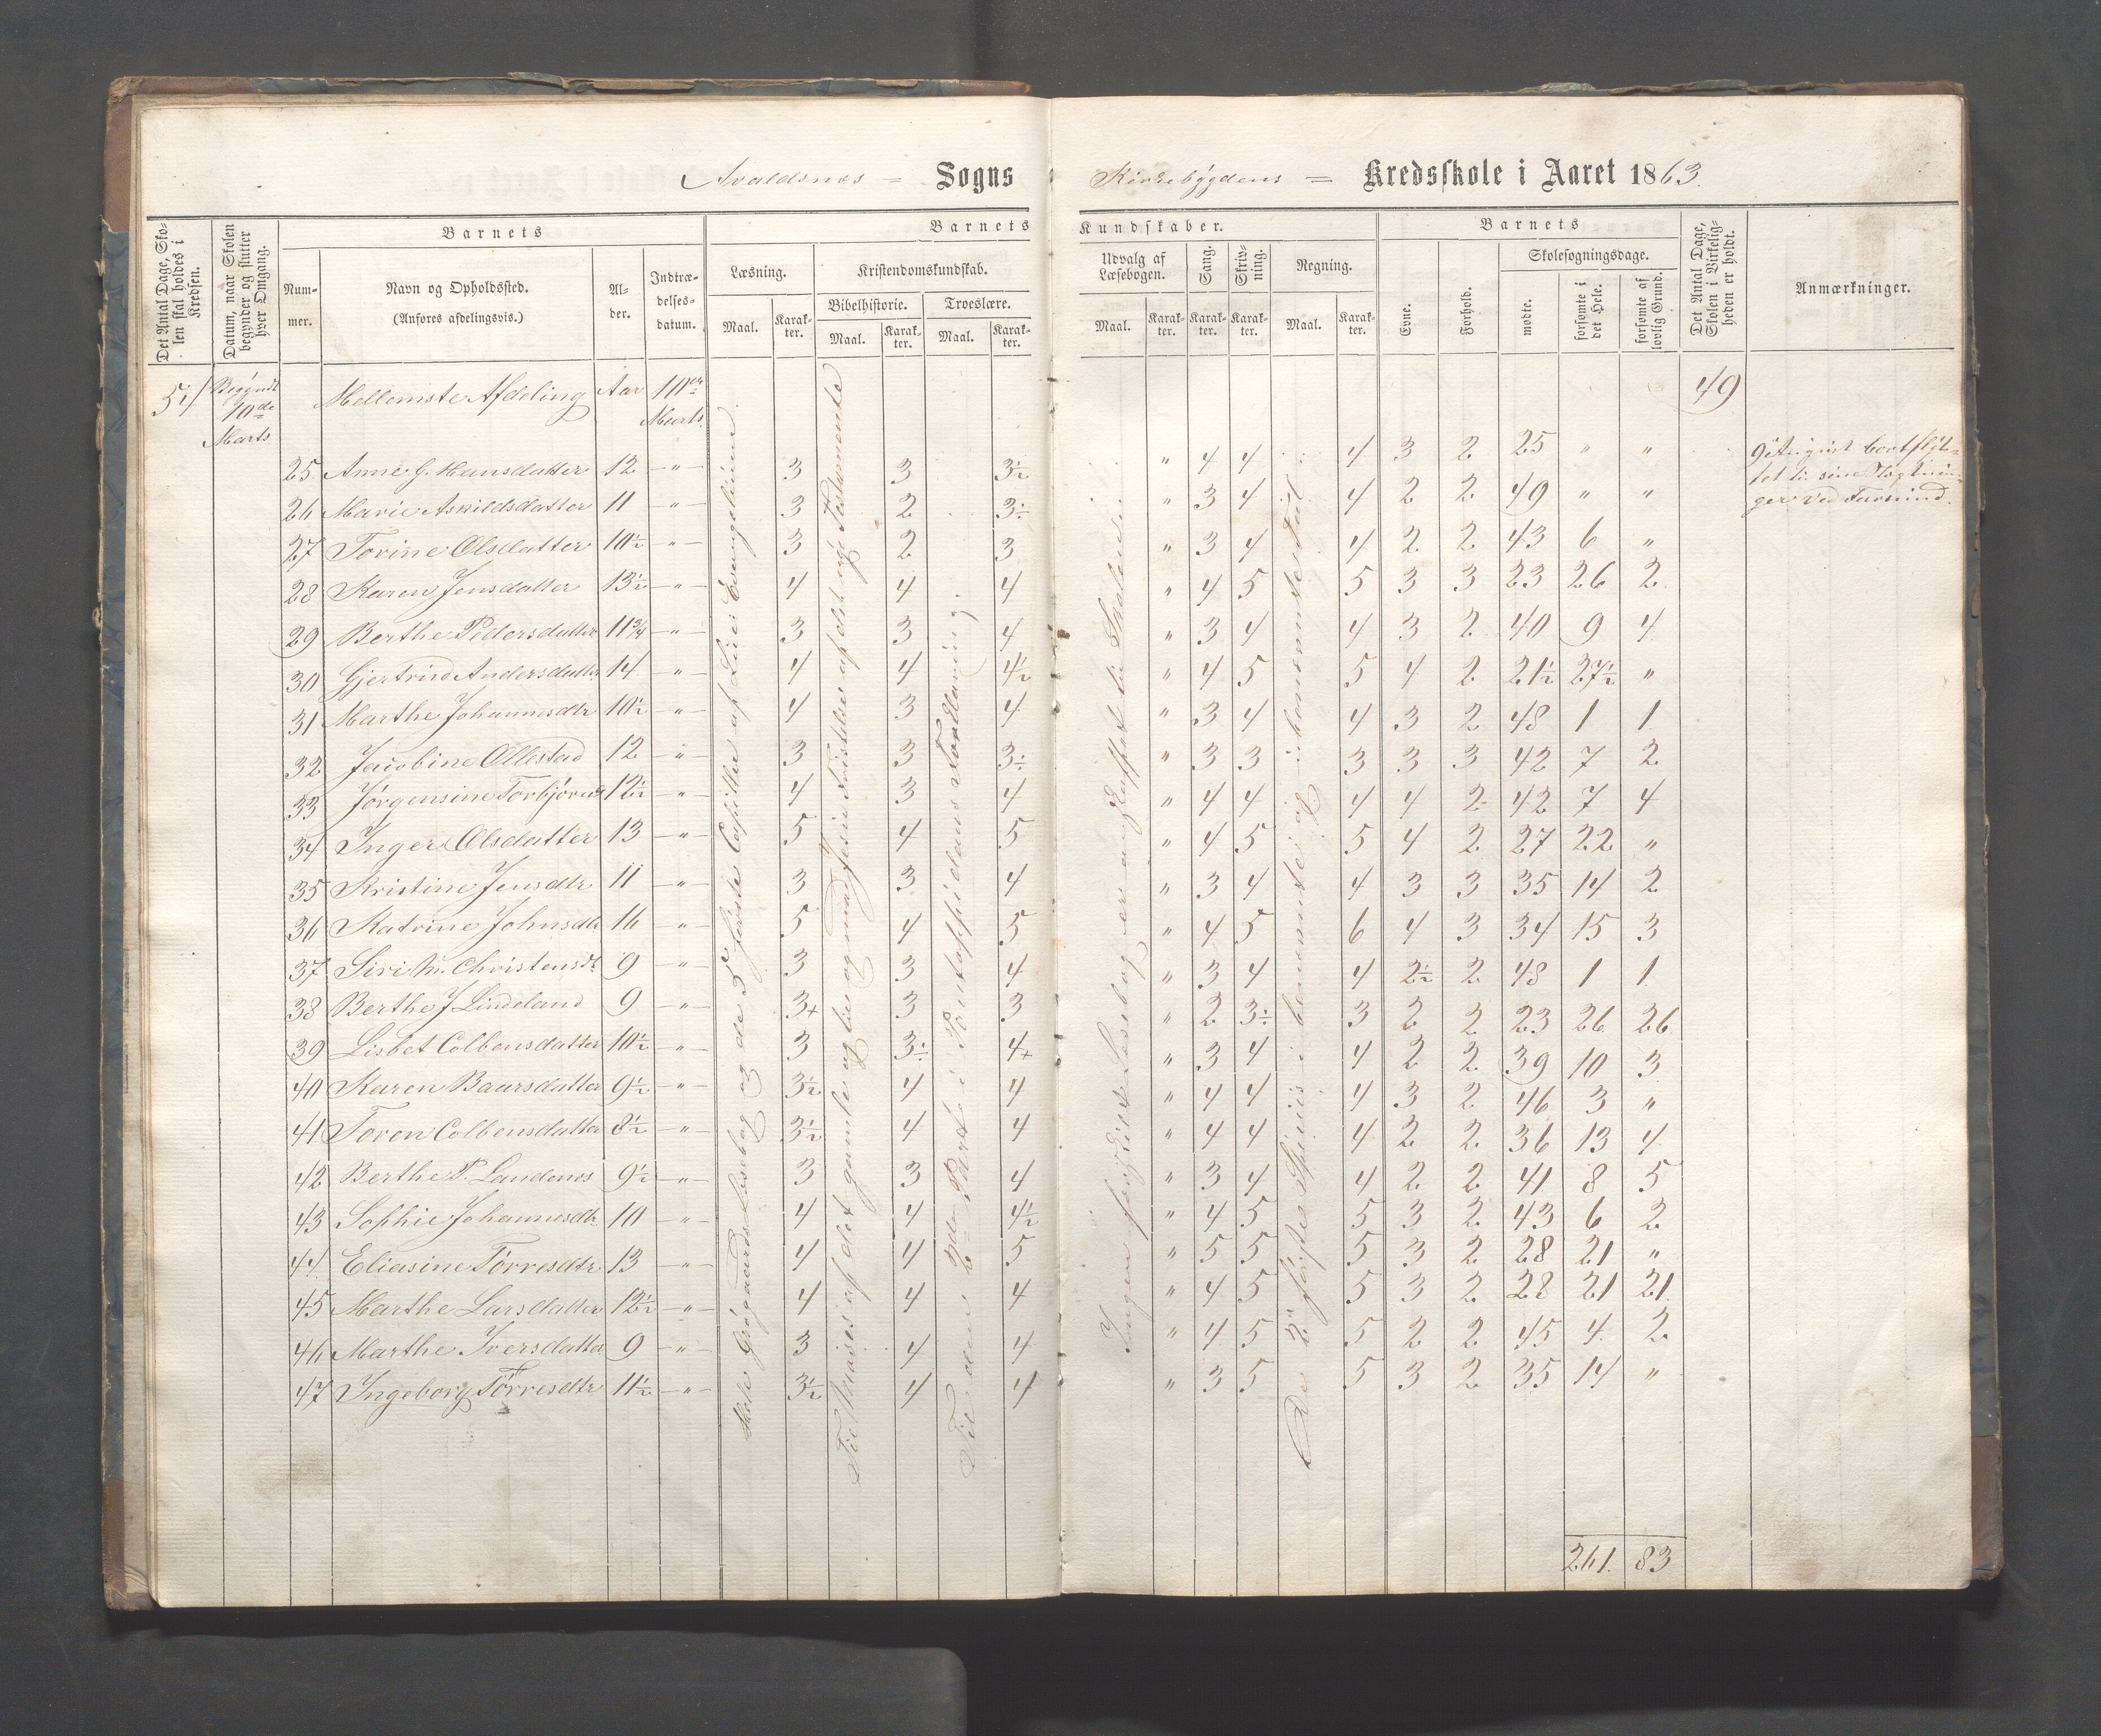 Avaldsnes = Sogns Kirkebygdens = Kredsskole i Aaret 1863.
Det Antal Dage, Skolen skal holdes i Kredsen.
Datum, naar Skolen begynder og slutter hver Omgang.
Barnets
Nummer.
Navn og Opholdssted.
(Anføres afdelingsvis.)
Alder.
Indtrædelsesdatum.
Barnets Kundskaber.
Læsning.
Maal. Karakter.
Kristendomskundskab.
Bibelhistorie.
Maal. Karakter.
Troeslære.
Maal. Karakter.
Udvalg af Læsebogen.
Maal. Karakter.
Sang.
Karakter.
Skrivning.
Karakter.
Regning.
Maal. Karakter.
Barnets
Evne.
Forhold.
Skolesøgningsdage.
mødte.
forsømte i det Hele.
forsømte af lovlig Grund.
Det Antal Dage, Skolen i Virkeligheden er holdt.
Anmærkninger.
54 Begyndt 10de Marts Mellemste Afdeling Aar 10de Marts 49
25 Anne G. Hansdatter 12 -"- 3 3 3½ " 4 4 4 3 2 25 " "
26 Marie Askildsdatter 11 -"- 3 2 3÷ " 3 4 4 2 2 49 " "
27 Torine Olsdatter 10½ -"- 3 2 3 " 3 4 4 2 2 43 6 "
28 Karen Jensdatter 13½ -"- 4 4 4 " 4 5 5 3 3 23 26 2
29 Berthe Pedersdatter 11¾ -"- 3 3 4 " 3 4 4 3 2 40 9 4
30 Gjertrud Andersdatter 14 -"- 4 4 4½ " 4 5 5 4 2 21½ 27½ "
31 Marthe Johannesdtr 10½ -"- 4 3 4 " 3 4 4 3 2 48 1 1
32 Jacobine Ollestad 12 -"- 3 3 3÷ " 3 3 3 3 3 42 7 2
33 Jørgensine Torbjørns 12½ -"- 4 3 4 " 4 4 4 4 2 42 7 4
34 Inger Olsdatter 13 -"- 5 4 5 " 4 5 5 4 2 27 22 "
35 Kristine Jensdtr 11 -"- 3 3 4 " 3 4 4 3 3 35 14 2
36 Katrine Johnsdtr 16 -"- 5 4 5 " 4 5 6 4 3 34 15 3
37 Siri M. Christensdt 9 -"- 3 3 4 " 3 4 4 2½ 2 48 1 1
38 Berthe J Lindeland 9 -"- 3+ 3 3 " 2 3÷ 3 2 2 23 26 26
39 Lisbet Colbensdatter 10½ -"- 3 3÷ 4+ " 3 4 4 2 2 39 10 3
40 Karen Baarsdatter 9½ -"- 3½ 4 4 " 4 4 4 3 2 46 3 "
41 Toren Colbensdatter 8½ -"- 3½ 4 4 " 4 4 4 2 2 36 13 4
42 Berthe P. Landenes 9½ -"- 3 3 4 " 3 4 4 2 2 41 8 5
43 Sophie Johannesdtr 10 -"- 4 4 4½ " 4 5 5 3 2 43 6 2
44 Eliasine Tørresdtr 13 -"- 4 4 5 " 5 5 5 3 2 28 21 "
45 Marthe Larsdatter 12½ -"- 4 4 4 " 4 5 5 3 2 28 21 21
46 Marthe Iversdatter 9 -"- 3 4 4 " 4 5 5 2 2 45 4 2
47 Ingeborg Tørresdtr 11½ -"- 3½ 4 4 " 3 5 5 3 2 35 14 "
261. 83
Læsebog og de 3 første Capitler af Evangelium
Til Moses af det gamle og til af det nye Testamente
Til den 2den Part i Pontoppidans Forklaring.
Ingen Læsebog er anskaffet til Skolen
De 2 første Species i benævnte og ubenævnte Tal
9 August bortflyttet til sine Slægtninger ved Farsund.